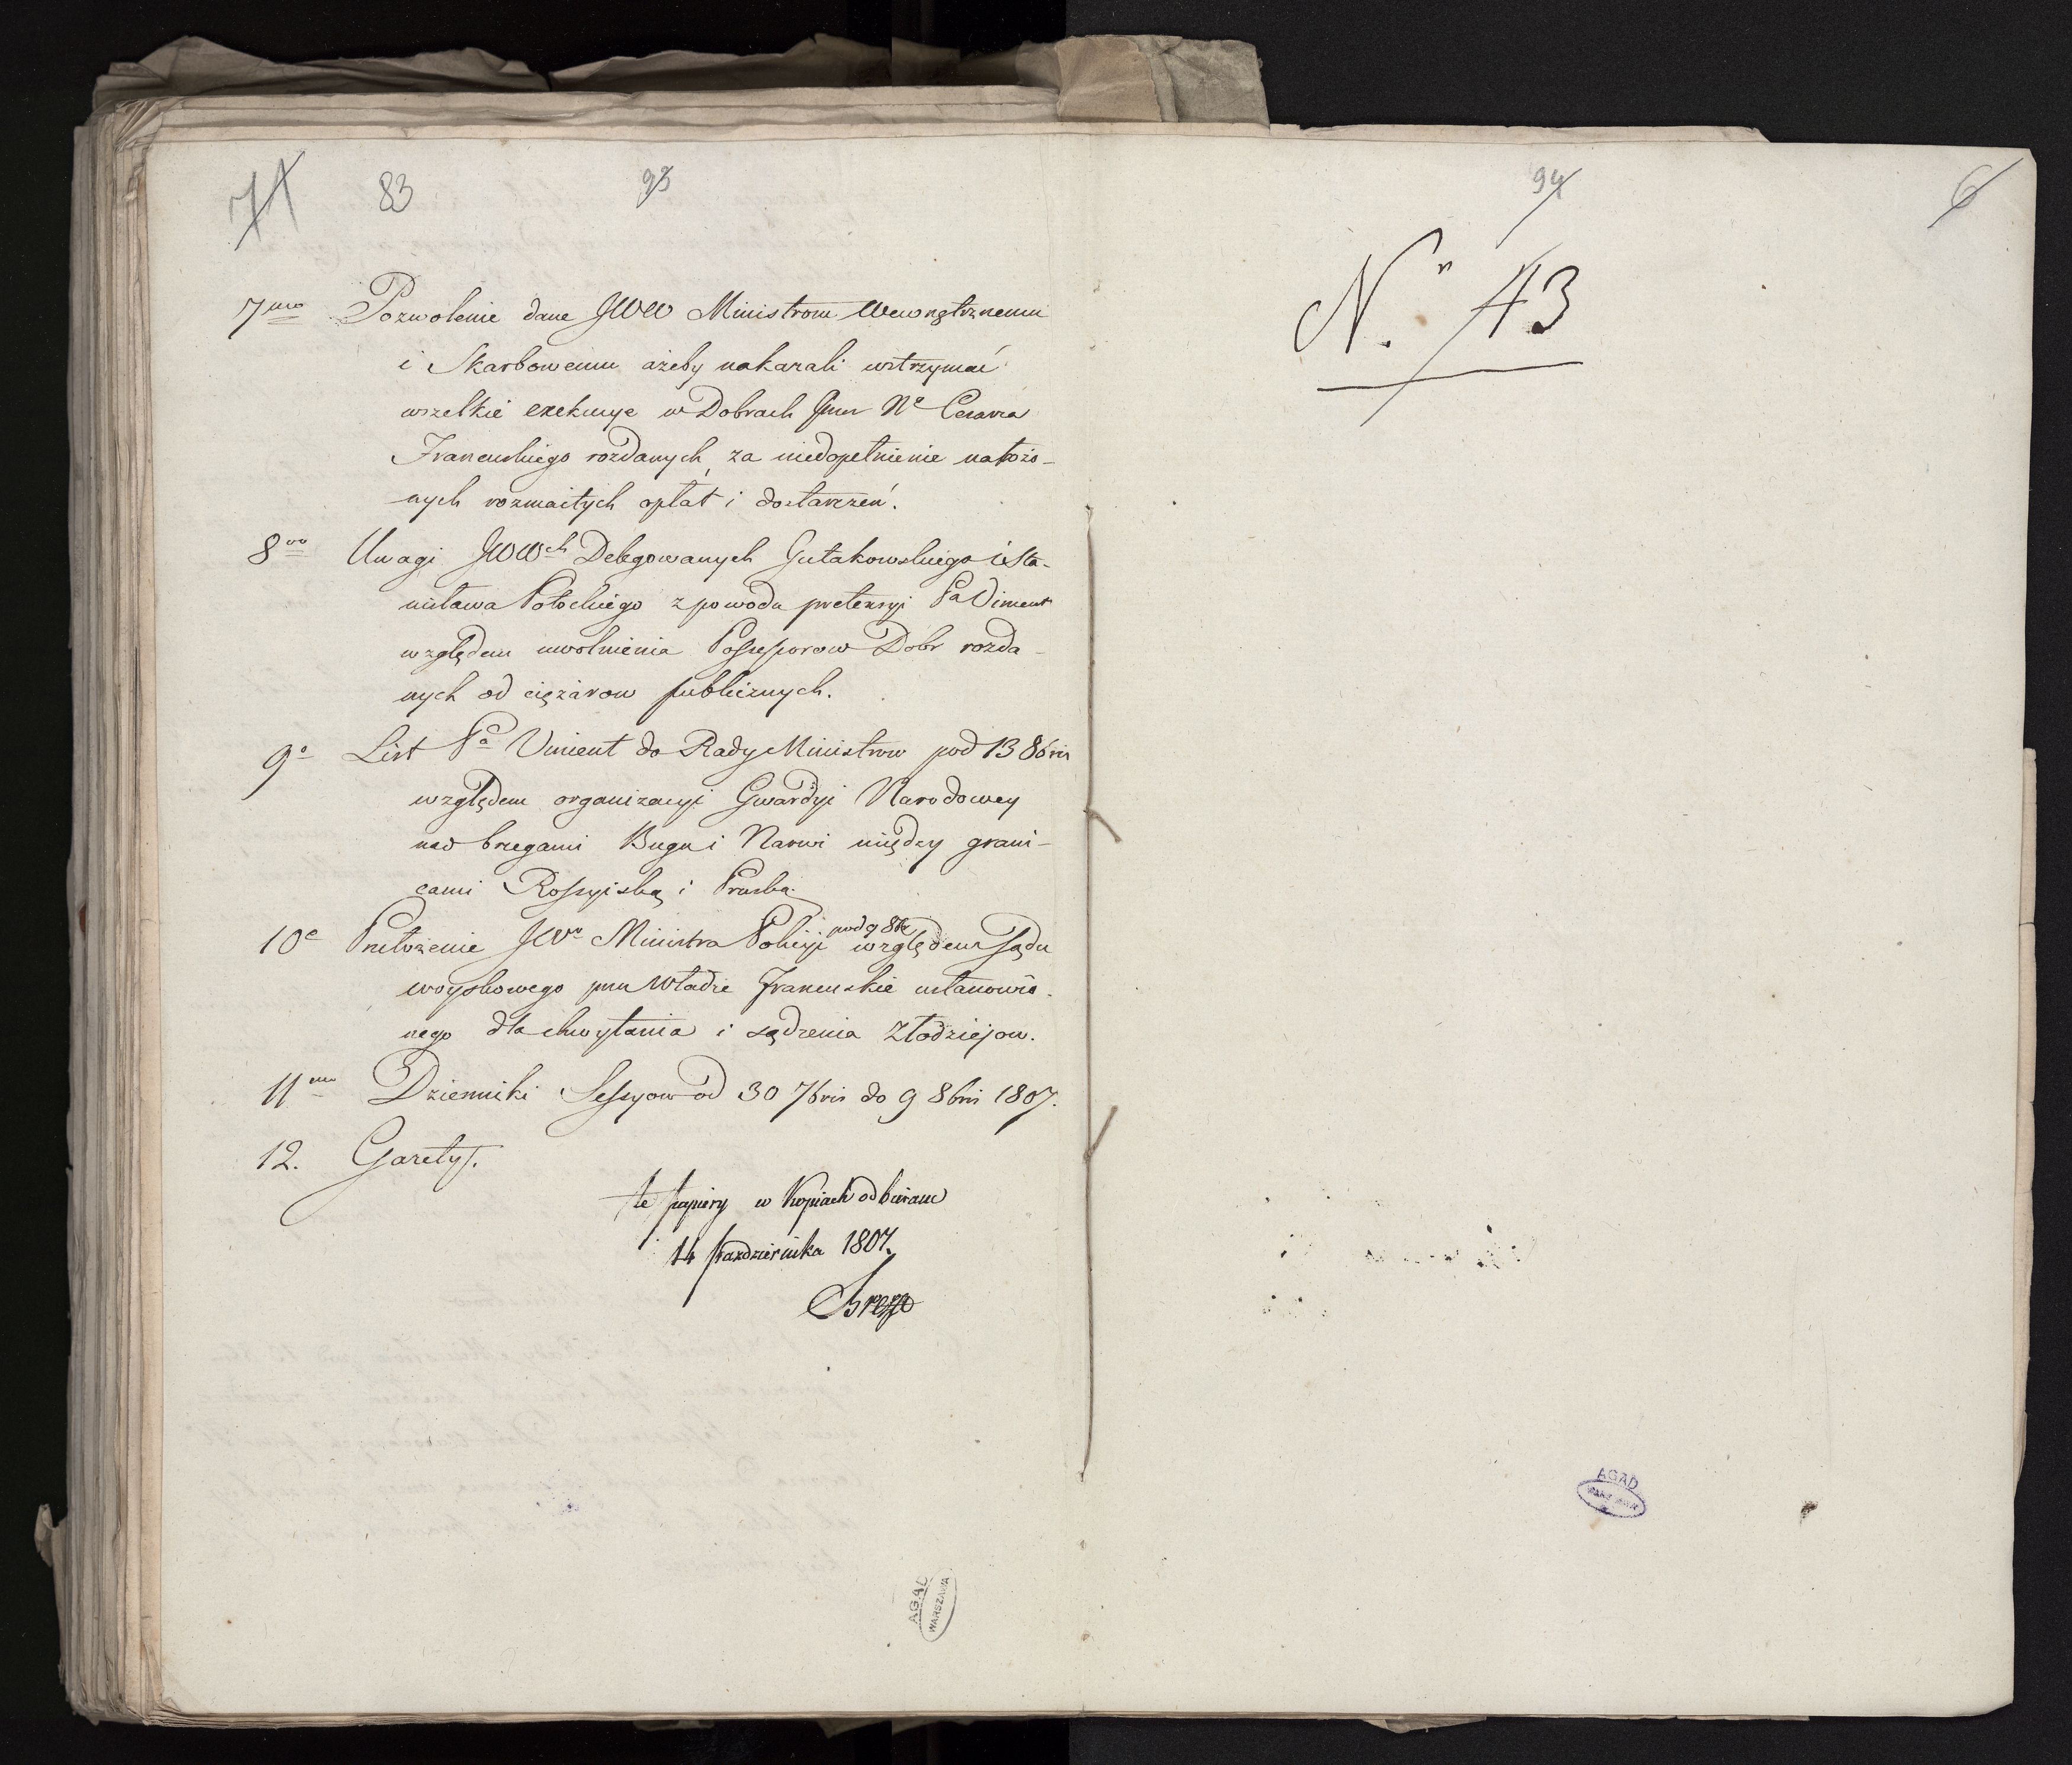 71 83 93
7mo Pozwolenie dane JWW Ministrom Wewnętrznemu
i Skarbowemu ażeby nakazali wstrzymać
wszelkie exekucye w Dobrach Cesarza
Francuskiego rozdanych, za niedopełnienie nałożo-
nych rozmaitych opłat i dostarczeń.
8vo Uwagi JWWch Delegowanych Gutakowskiego i Sta-
nisława Potockiego z powodu pretensyi Pa Vincent
względem uwolnienia Possessorow Dobr rozda-
nych od ciężarow publicznych.
9o List Pa Vincent do Rady Ministrow pod 13 8bris
względem organizacyi Gwardyi Narodowey
nad brzegami Bugu i Narwi między grani-
cami Rossyiską i Pruską.
10o Przełożenie JWo Ministra Policyi pod 9 8br względem Sądu
woyskowego przez Władze Francuskie ustanowio-
nego dla chwytania i sądzenia Złodziejow.
11mo Dzienniki Sessyow od 30 7bris do 9 8bris 1807.
12. Gazety.
te papiery w Kopiach odbieram
14 Pazdziernika 1807.
Breza
AGAD
WARSZAWA
94 6
N.o 43
AGAD
WARSZAWA